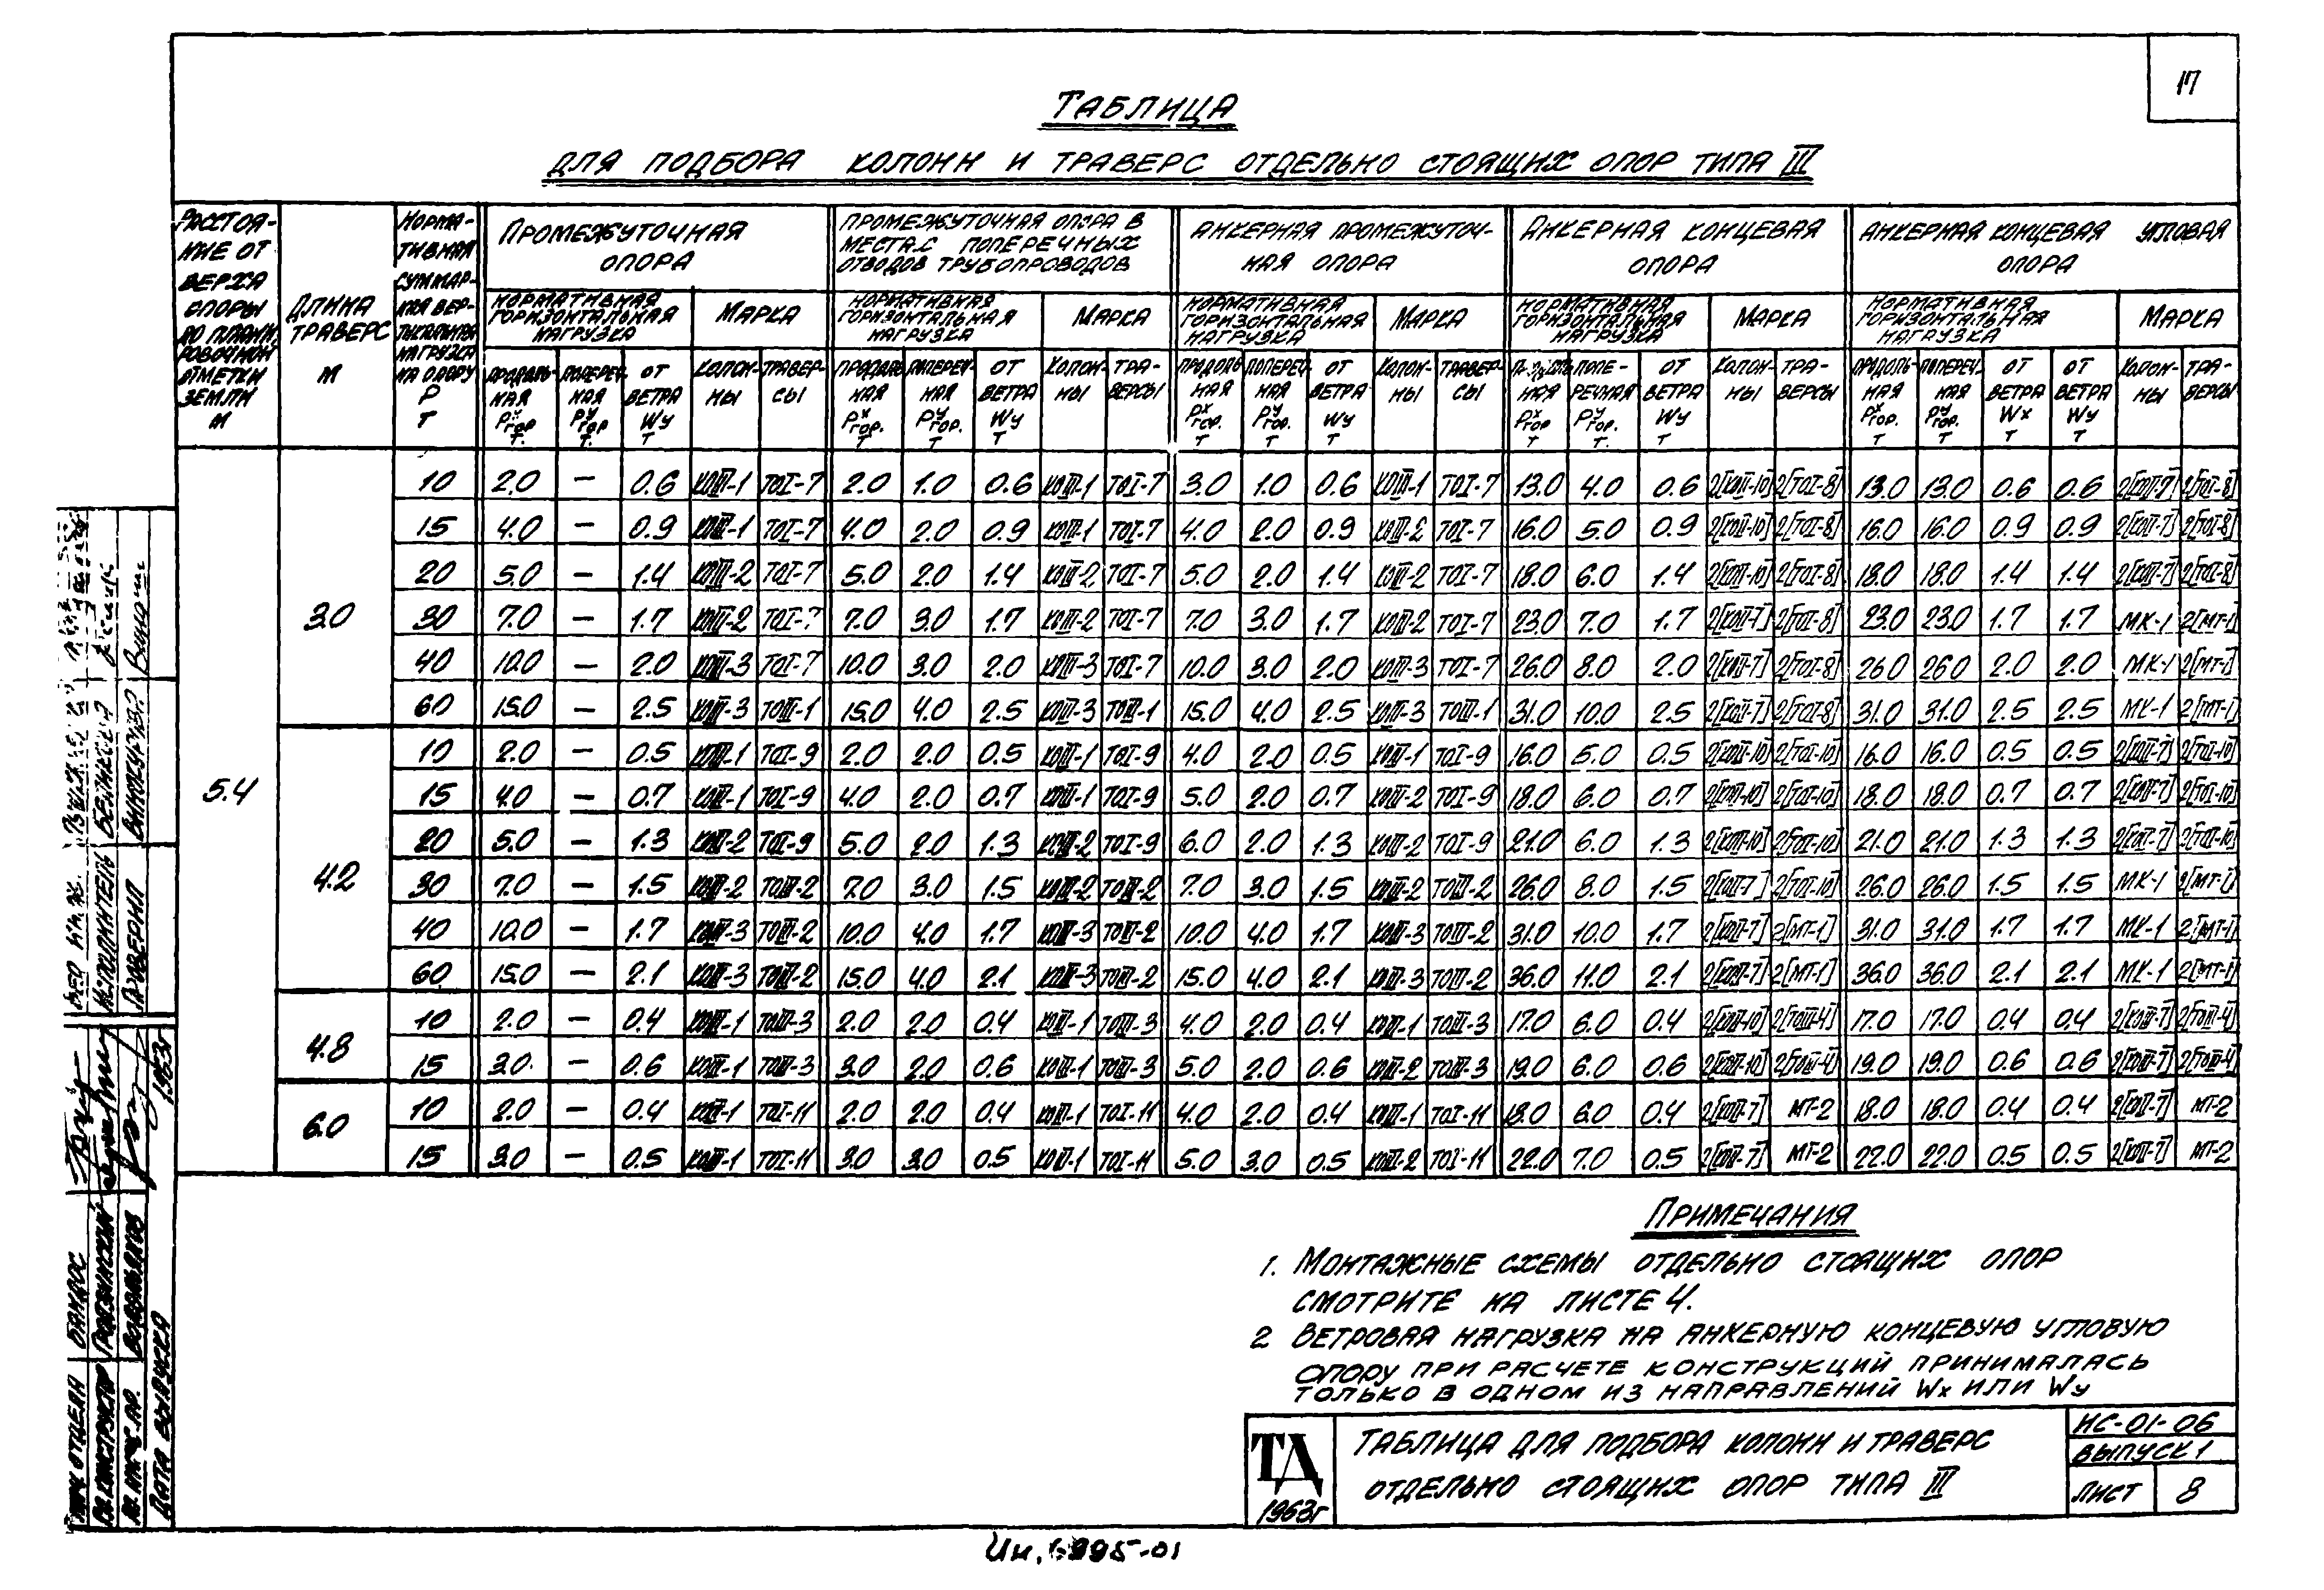 17
ТАБЛИЦА
ДЛЯ ПОДБОРА КОЛОНН И ТРАВЕРС ОТДЕЛЬНО СТОЯЩИХ ОПОР ТИПА III
РАССТОЯ-
НИЕ ОТ
ВЕРХА
ОПОРЫ
ДО ПЛАНИ-
РОВОЧНОЙ
ОТМЕТКИ
ЗЕМЛИ
М
ДЛИНА
ТРАВЕРС
М
НОРМА-
ТИВНАЯ
СУММАР-
НАЯ ВЕР-
ТИКАЛЬНАЯ
НАГРУЗКА
НА ОПОРУ
Р
Т
ПРОМЕЖУТОЧНАЯ
ОПОРА
ПРОМЕЖУТОЧНАЯ ОПОРА В
МЕСТАХ ПОПЕРЕЧНЫХ
ОТВОДОВ ТРУБОПРОВОДОВ
АНКЕРНАЯ ПРОМЕЖУТОЧ-
НАЯ ОПОРА
АНКЕРНАЯ КОНЦЕВАЯ
ОПОРА
АНКЕРНАЯ КОНЦЕВАЯ УГЛОВАЯ
ОПОРА
НОРМАТИВНАЯ ГОРИЗОНТАЛЬНАЯ НАГРУЗКА МАРКА
НОРМАТИВНАЯ ГОРИЗОНТАЛЬНАЯ НАГРУЗКА МАРКА
НОРМАТИВНАЯ ГОРИЗОНТАЛЬНАЯ НАГРУЗКА МАРКА
НОРМАТИВНАЯ ГОРИЗОНТАЛЬНАЯ НАГРУЗКА МАРКА
НОРМАТИВНАЯ ГОРИЗОНТАЛЬНАЯ НАГРУЗКА МАРКА
ПРОДОЛЬ-НАЯ Pˣгор Т. ПОПЕРЕЧ-НАЯ Pʸгор Т. ОТ ВЕТРА Wy Т КОЛОН-НЫ ТРАВЕР-СЫ
ПРОДОЛЬ-НАЯ Pˣгор. Т ПОПЕРЕЧ-НАЯ Pʸгор. Т ОТ ВЕТРА Wy Т КОЛОН-НЫ ТРА-ВЕРСЫ
ПРОДОЛЬ-НАЯ Pˣгор. Т ПОПЕРЕЧ-НАЯ Pʸгор. Т ОТ ВЕТРА Wy Т КОЛОН-НЫ ТРАВЕР-СЫ
ПРОДОЛЬ-НАЯ Pˣгор Т ПОПЕ-РЕЧНАЯ Pʸгор. Т. ОТ ВЕТРА Wy Т КОЛОН-НЫ ТРА-ВЕРСЫ
ПРОДОЛЬ-НАЯ Pˣгор. Т ПОПЕРЕЧ-НАЯ Pʸгор. Т ОТ ВЕТРА Wx Т ОТ ВЕТРА Wy Т КОЛОН-НЫ ТРА-ВЕРСЫ
5.4
3.0
10 2.0 — 0.6 КОIII-1 ТОI-7 2.0 1.0 0.6 КОIII-1 ТОI-7 3.0 1.0 0.6 КОIII-1 ТОI-7 13.0 4.0 0.6 2[КОII-10] 2[ТОI-8] 13.0 13.0 0.6 0.6 2[КОII-7] 2[ТОI-8]
15 4.0 — 0.9 КОIII-1 ТОI-7 4.0 2.0 0.9 КОIII-1 ТОI-7 4.0 2.0 0.9 КОIII-2 ТОI-7 16.0 5.0 0.9 2[КОII-10] 2[ТОI-8] 16.0 16.0 0.9 0.9 2[КОII-7] 2[ТОI-8]
20 5.0 — 1.4 КОIII-2 ТОI-7 5.0 2.0 1.4 КОIII-2 ТОI-7 5.0 2.0 1.4 КОIII-2 ТОI-7 18.0 6.0 1.4 2[КОII-10] 2[ТОI-8] 18.0 18.0 1.4 1.4 2[КОII-7] 2[ТОI-8]
30 7.0 — 1.7 КОIII-2 ТОI-7 7.0 3.0 1.7 КОIII-2 ТОI-7 7.0 3.0 1.7 КОIII-2 ТОI-7 23.0 7.0 1.7 2[КОII-7] 2[ТОI-8] 23.0 23.0 1.7 1.7 МК-1 2[МТ-1]
40 10.0 — 2.0 КОIII-3 ТОI-7 10.0 3.0 2.0 КОIII-3 ТОI-7 10.0 3.0 2.0 КОIII-3 ТОI-7 26.0 8.0 2.0 2[КОII-7] 2[ТОI-8] 26.0 26.0 2.0 2.0 МК-1 2[МТ-1]
60 15.0 — 2.5 КОIII-3 ТОIII-1 15.0 4.0 2.5 КОIII-3 ТОIII-1 15.0 4.0 2.5 КОIII-3 ТОIII-1 31.0 10.0 2.5 2[КОII-7] 2[ТОI-8] 31.0 31.0 2.5 2.5 МК-1 2[МТ-1]
4.2
10 2.0 — 0.5 КОIII-1 ТОI-9 2.0 2.0 0.5 КОIII-1 ТОI-9 4.0 2.0 0.5 КОIII-1 ТОI-9 16.0 5.0 0.5 2[КОII-10] 2[ТОI-10] 16.0 16.0 0.5 0.5 2[КОII-7] 2[ТОI-10]
15 4.0 — 0.7 КОIII-1 ТОI-9 4.0 2.0 0.7 КОIII-1 ТОI-9 5.0 2.0 0.7 КОIII-2 ТОI-9 18.0 6.0 0.7 2[КОII-10] 2[ТОI-10] 18.0 18.0 0.7 0.7 2[КОII-7] 2[ТОI-10]
20 5.0 — 1.3 КОIII-2 ТОI-9 5.0 2.0 1.3 КОIII-2 ТОI-9 6.0 2.0 1.3 КОIII-2 ТОI-9 21.0 6.0 1.3 2[КОII-10] 2[ТОI-10] 21.0 21.0 1.3 1.3 2[КОII-7] 2[ТОI-10]
30 7.0 — 1.5 КОIII-2 ТОIII-2 7.0 3.0 1.5 КОIII-2 ТОIII-2 7.0 3.0 1.5 КОIII-2 ТОIII-2 26.0 8.0 1.5 2[КОII-7] 2[ТОI-10] 26.0 26.0 1.5 1.5 МК-1 2[МТ-1]
40 10.0 — 1.7 КОIII-3 ТОIII-2 10.0 4.0 1.7 КОIII-3 ТОIII-2 10.0 4.0 1.7 КОIII-3 ТОIII-2 31.0 10.0 1.7 2[КОII-7] 2[МТ-1] 31.0 31.0 1.7 1.7 МК-1 2[МТ-1]
60 15.0 — 2.1 КОIII-3 ТОIII-2 15.0 4.0 2.1 КОIII-3 ТОIII-2 15.0 4.0 2.1 КОIII-3 ТОIII-2 36.0 11.0 2.1 2[КОII-7] 2[МТ-1] 36.0 36.0 2.1 2.1 МК-1 2[МТ-1]
4.8
10 2.0 — 0.4 КОIII-1 ТОIII-3 2.0 2.0 0.4 КОIII-1 ТОIII-3 4.0 2.0 0.4 КОIII-1 ТОIII-3 17.0 6.0 0.4 2[КОII-10] 2[ТОIII-4] 17.0 17.0 0.4 0.4 2[КОII-7] 2[ТОIII-4]
15 3.0 — 0.6 КОIII-1 ТОIII-3 3.0 2.0 0.6 КОIII-1 ТОIII-3 5.0 2.0 0.6 КОIII-2 ТОIII-3 19.0 6.0 0.6 2[КОII-10] 2[ТОIII-4] 19.0 19.0 0.6 0.6 2[КОII-7] 2[ТОIII-4]
6.0
10 2.0 — 0.4 КОIII-1 ТОI-11 2.0 2.0 0.4 КОIII-1 ТОI-11 4.0 2.0 0.4 КОIII-1 ТОI-11 18.0 6.0 0.4 2[КОII-7] МТ-2 18.0 18.0 0.4 0.4 2[КОII-7] МТ-2
15 3.0 — 0.5 КОIII-1 ТОI-11 3.0 3.0 0.5 КОIII-1 ТОI-11 5.0 3.0 0.5 КОIII-2 ТОI-11 22.0 7.0 0.5 2[КОII-7] МТ-2 22.0 22.0 0.5 0.5 2[КОII-7] МТ-2
ПРИМЕЧАНИЯ
1. МОНТАЖНЫЕ СХЕМЫ ОТДЕЛЬНО СТОЯЩИХ ОПОР
СМОТРИТЕ НА ЛИСТЕ 4.
2 ВЕТРОВАЯ НАГРУЗКА НА АНКЕРНУЮ КОНЦЕВУЮ УГЛОВУЮ
ОПОРУ ПРИ РАСЧЕТЕ КОНСТРУКЦИЙ ПРИНИМАЛАСЬ
ТОЛЬКО В ОДНОМ ИЗ НАПРАВЛЕНИЙ Wx ИЛИ Wy
ТД
1963г
ТАБЛИЦА ДЛЯ ПОДБОРА КОЛОНН И ТРАВЕРС
ОТДЕЛЬНО СТОЯЩИХ ОПОР ТИПА III
ИС-01-06
ВЫПУСК 1
ЛИСТ 8
НАЧ. ОТДЕЛА
ГЛ. КОНСТРУКТОР
ДАТА ВЫПУСКА 1963г
ИСПОЛНИТЕЛЬ
ПРОВЕРИЛ